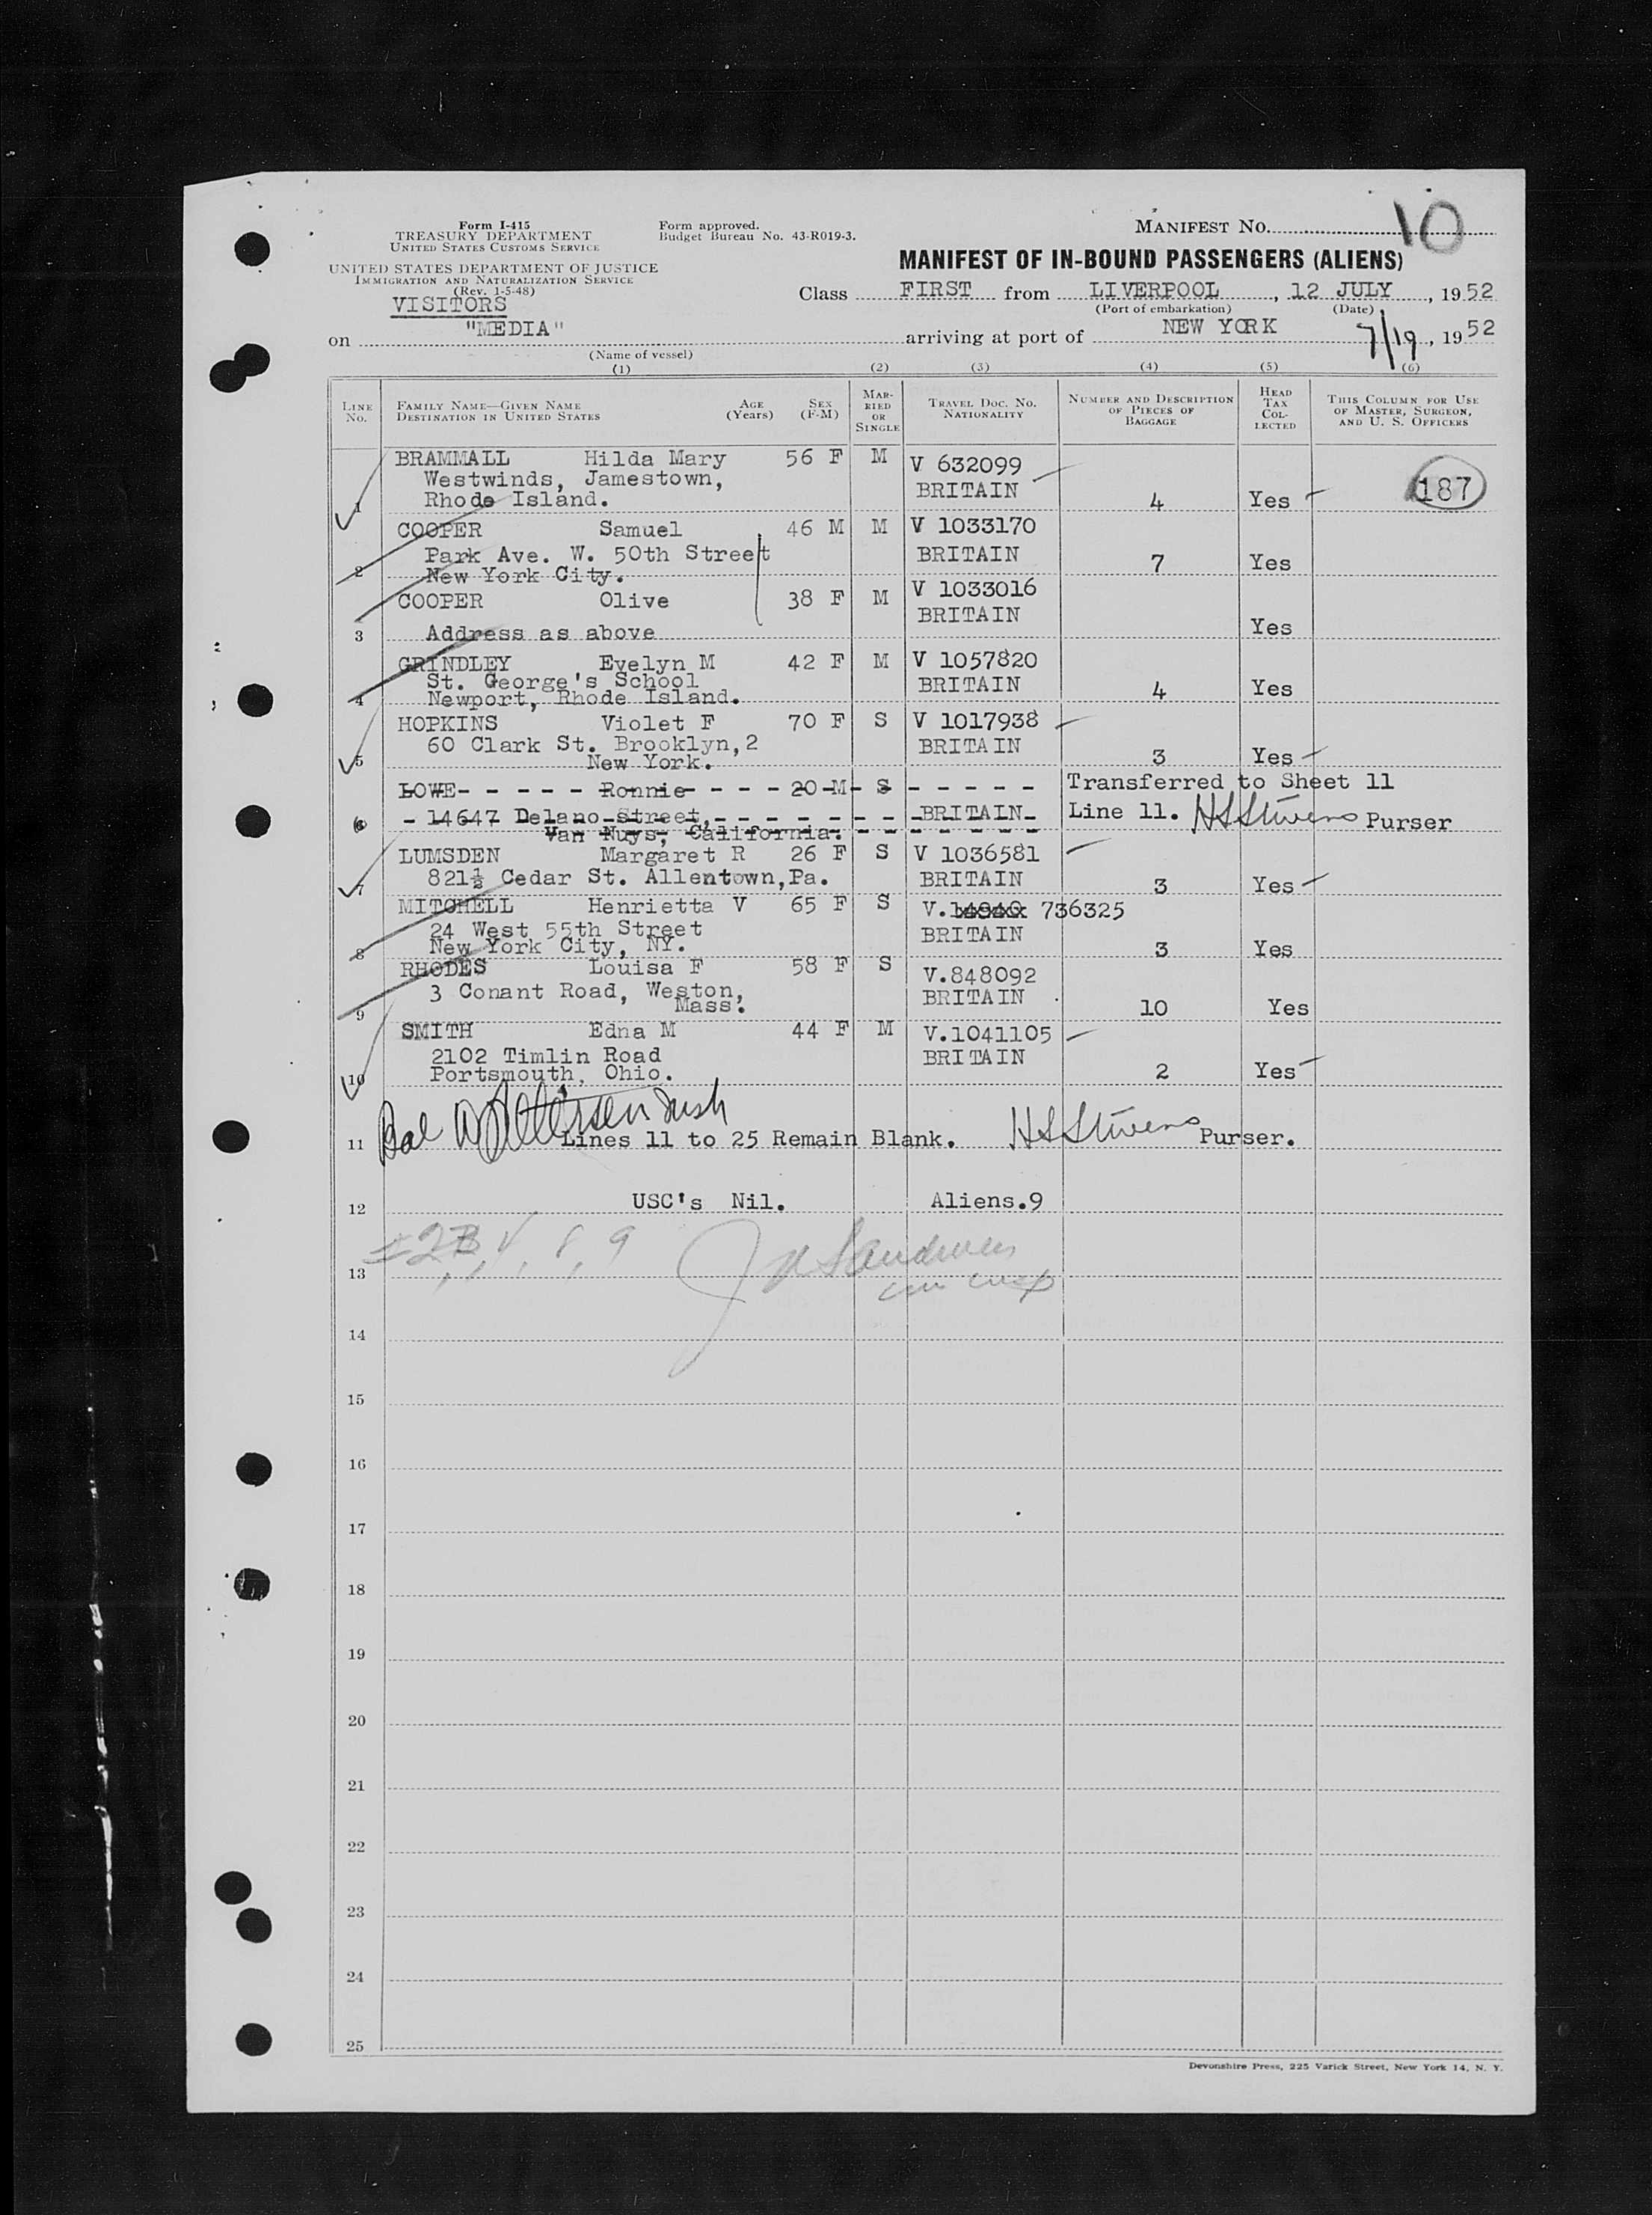 Form I-415
TREASURY DEPARTMENT
UNITED STATES CUSTOMS SERVICE
Form approved.
Budget Bureau No. 43-R019-3.
MANIFEST NO. 10
UNITED STATES DEPARTMENT OF JUSTICE
IMMIGRATION AND NATURALIZATION SERVICE
(Rev. 1-5-48)
VISITORS
MANIFEST OF IN-BOUND PASSENGERS (ALIENS)
Class FIRST from LIVERPOOL, 12 JULY, 1952
(Port of embarkation) (Date)
on "MEDIA" arriving at port of NEW YORK 7/19, 1952
(Name of vessel)
(1) (2) (3) (4) (5) (6)
LINE No. FAMILY NAME—GIVEN NAME DESTINATION IN UNITED STATES AGE (Years) SEX (F-M) MARRIED OR SINGLE TRAVEL DOC. NO. NATIONALITY NUMBER AND DESCRIPTION OF PIECES OF BAGGAGE HEAD TAX COLLECTED THIS COLUMN FOR USE OF MASTER, SURGEON, AND U. S. OFFICERS
BRAMMALL Hilda Mary 56 F M V 632099
Westwinds, Jamestown, BRITAIN 187
1 Rhode Island. 4 Yes
COOPER Samuel 46 M M V 1033170
Park Ave. W. 50th Street BRITAIN 7 Yes
2 New York City.
COOPER Olive 38 F M V 1033016
BRITAIN
3 Address as above Yes
GRINDLEY Evelyn M 42 F M V 1057820
St. George's School BRITAIN
4 Newport, Rhode Island. 4 Yes
HOPKINS Violet F 70 F S V 1017938
60 Clark St. Brooklyn,2 BRITAIN
5 New York. 3 Yes
LOWE- - - - - Ronnie- - - - 20-M- S - - - - - Transferred to Sheet 11
6 - 14647 Delano Street,- - - - - - - -BRITAIN- Line 11. HS Stivens Purser
Van Nuys, California.- - - - - - -
LUMSDEN Margaret R 26 F S V 1036581
7 821½ Cedar St. Allentown,Pa. BRITAIN 3 Yes
MITCHELL Henrietta V 65 F S V. 736325
24 West 55th Street BRITAIN
8 New York City, NY. 3 Yes
RHODES Louisa F 58 F S V.848092
3 Conant Road, Weston, BRITAIN
9 Mass. 10 Yes
SMITH Edna M 44 F M V.1041105
2102 Timlin Road BRITAIN
10 Portsmouth, Ohio. 2 Yes
11 Lines 11 to 25 Remain Blank. HS Stivens Purser.
12 USC's Nil. Aliens.9
4, 8, 9
13
14
15
16
17
18
19
20
21
22
23
24
25
Devonshire Press, 225 Varick Street, New York 14, N. Y.